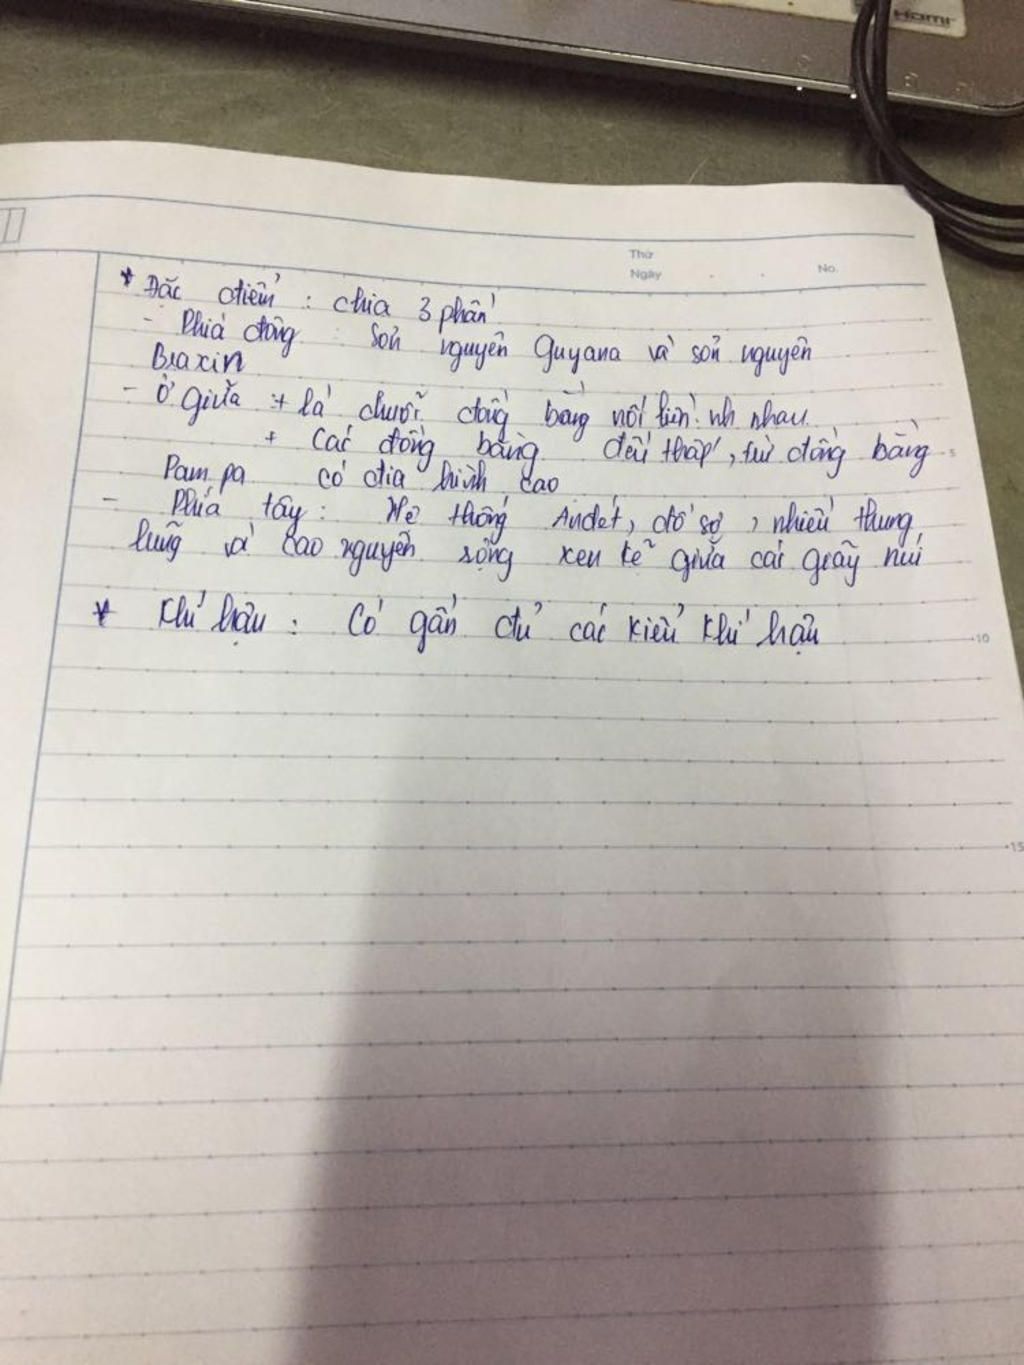 HDMI
Thứ
Ngày . . No.
* Đặc điểm : chia 3 phần
- Phía đông : Sơn nguyên Guyana và sơn nguyên
Braxin
- Ở giữa : + là chuỗi đồng bằng nối liền nh nhau
+ Các đồng bằng đều thấp, trừ đồng bằng
5
Pampa có địa hình cao
- Phía tây : Hệ thống Anđét, đồ sộ, nhiều thung
lũng và cao nguyên rộng xen kẽ giữa các giãy núi
* Khí hậu : Có gần đủ các kiểu khí hậu
10
15